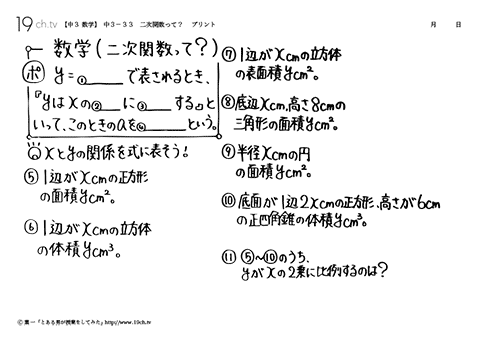 19ch.tv 【中3 数学】 中3-33 二次関数って? プリント 月 日
数学(二次関数って?)
ポ y=①____で表されるとき、
『yはxの②____に③____する』と
いって、このときのaを④____という。
xとyの関係を式に表そう!
⑤ 1辺がxcmの正方形
の面積ycm²。
⑥ 1辺がxcmの立方体
の体積ycm³。
⑦ 1辺がxcmの立方体
の表面積ycm²。
⑧ 底辺xcm、高さ8cmの
三角形の面積ycm²。
⑨ 半径xcmの円
の面積ycm²。
⑩ 底面が1辺2xcmの正方形、高さが6cm
の正四角錐の体積ycm³。
⑪ ⑤~⑩のうち、
yがxの2乗に比例するのは?
© 葉一「とある男が授業をしてみた」http://www.19ch.tv